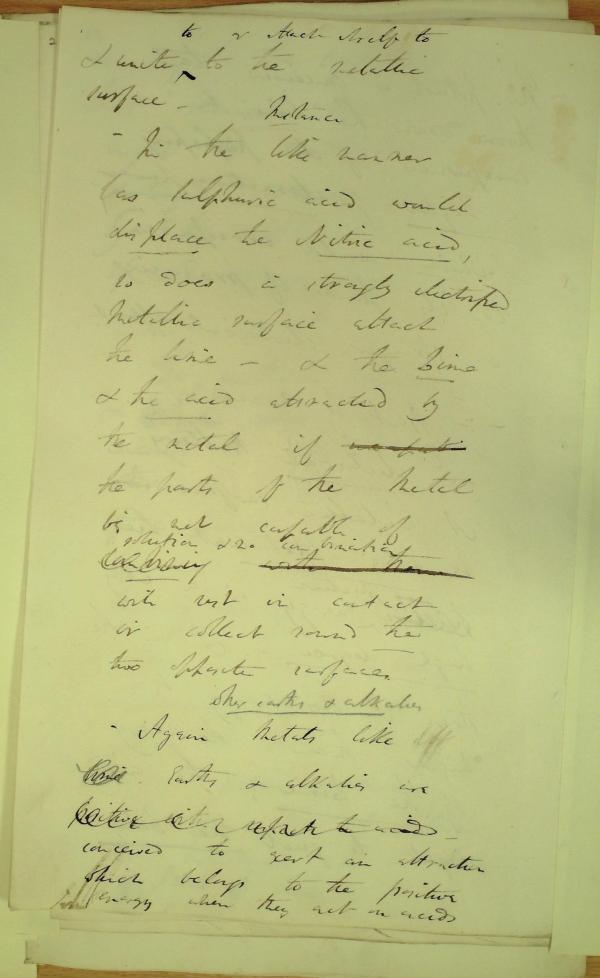 to or attach itself to
& unite to the metallic
surface -
Instance
- In the like manner
as sulphuric acid would
displace the Nitric acid,
so does a strongly electrified
Metallic surface attract
the lime - & the lime
& the acid attracted by
the metal if
the parts of the Metal
be not capable of
solution & no combination
with rest in contact
or collect round the
two opposite surfaces
other earths & alkalies
- Again Metals like
Earths & alkalies are
positive with respect to acids -
conceived to exert an attraction
which belongs to the positive
energy when they act on acids